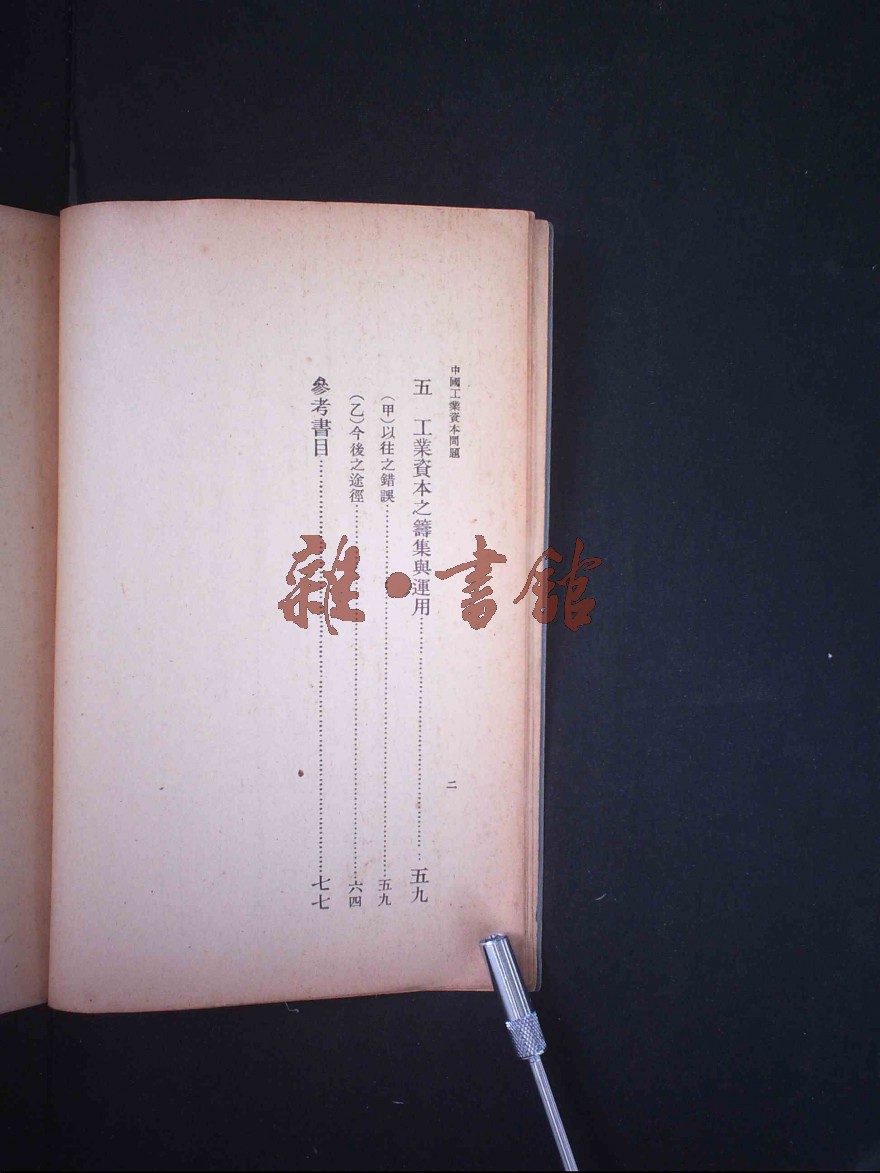 中國工業資本問題
二
五　工業資本之籌集與運用……五九
（甲）以往之錯誤……五九
（乙）今後之途徑……六四
參考書目……七七
雜•書館